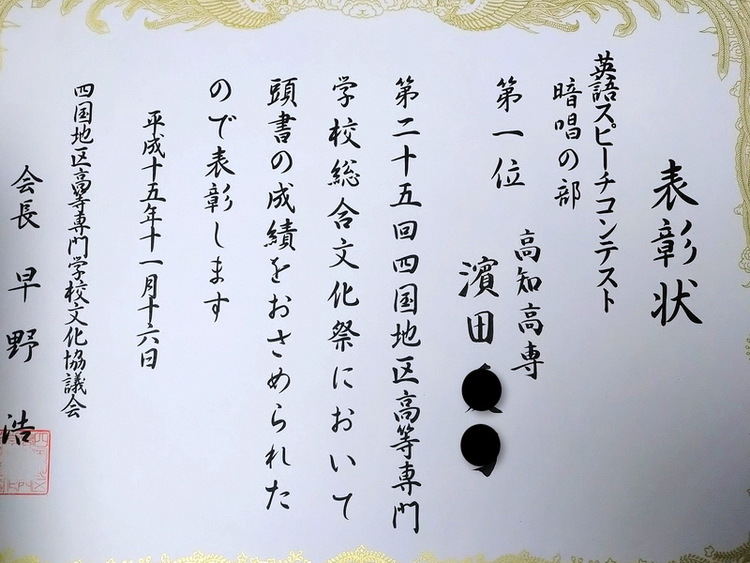 表彰状
英語スピーチコンテスト
暗唱の部
第一位
高知高専
濱田
第二十五回四国地区高等専門
学校総合文化祭において
頭書の成績をおさめられた
ので表彰します
平成十五年十一月十六日
四国地区高等専門学校文化協議会
会長 早野 浩